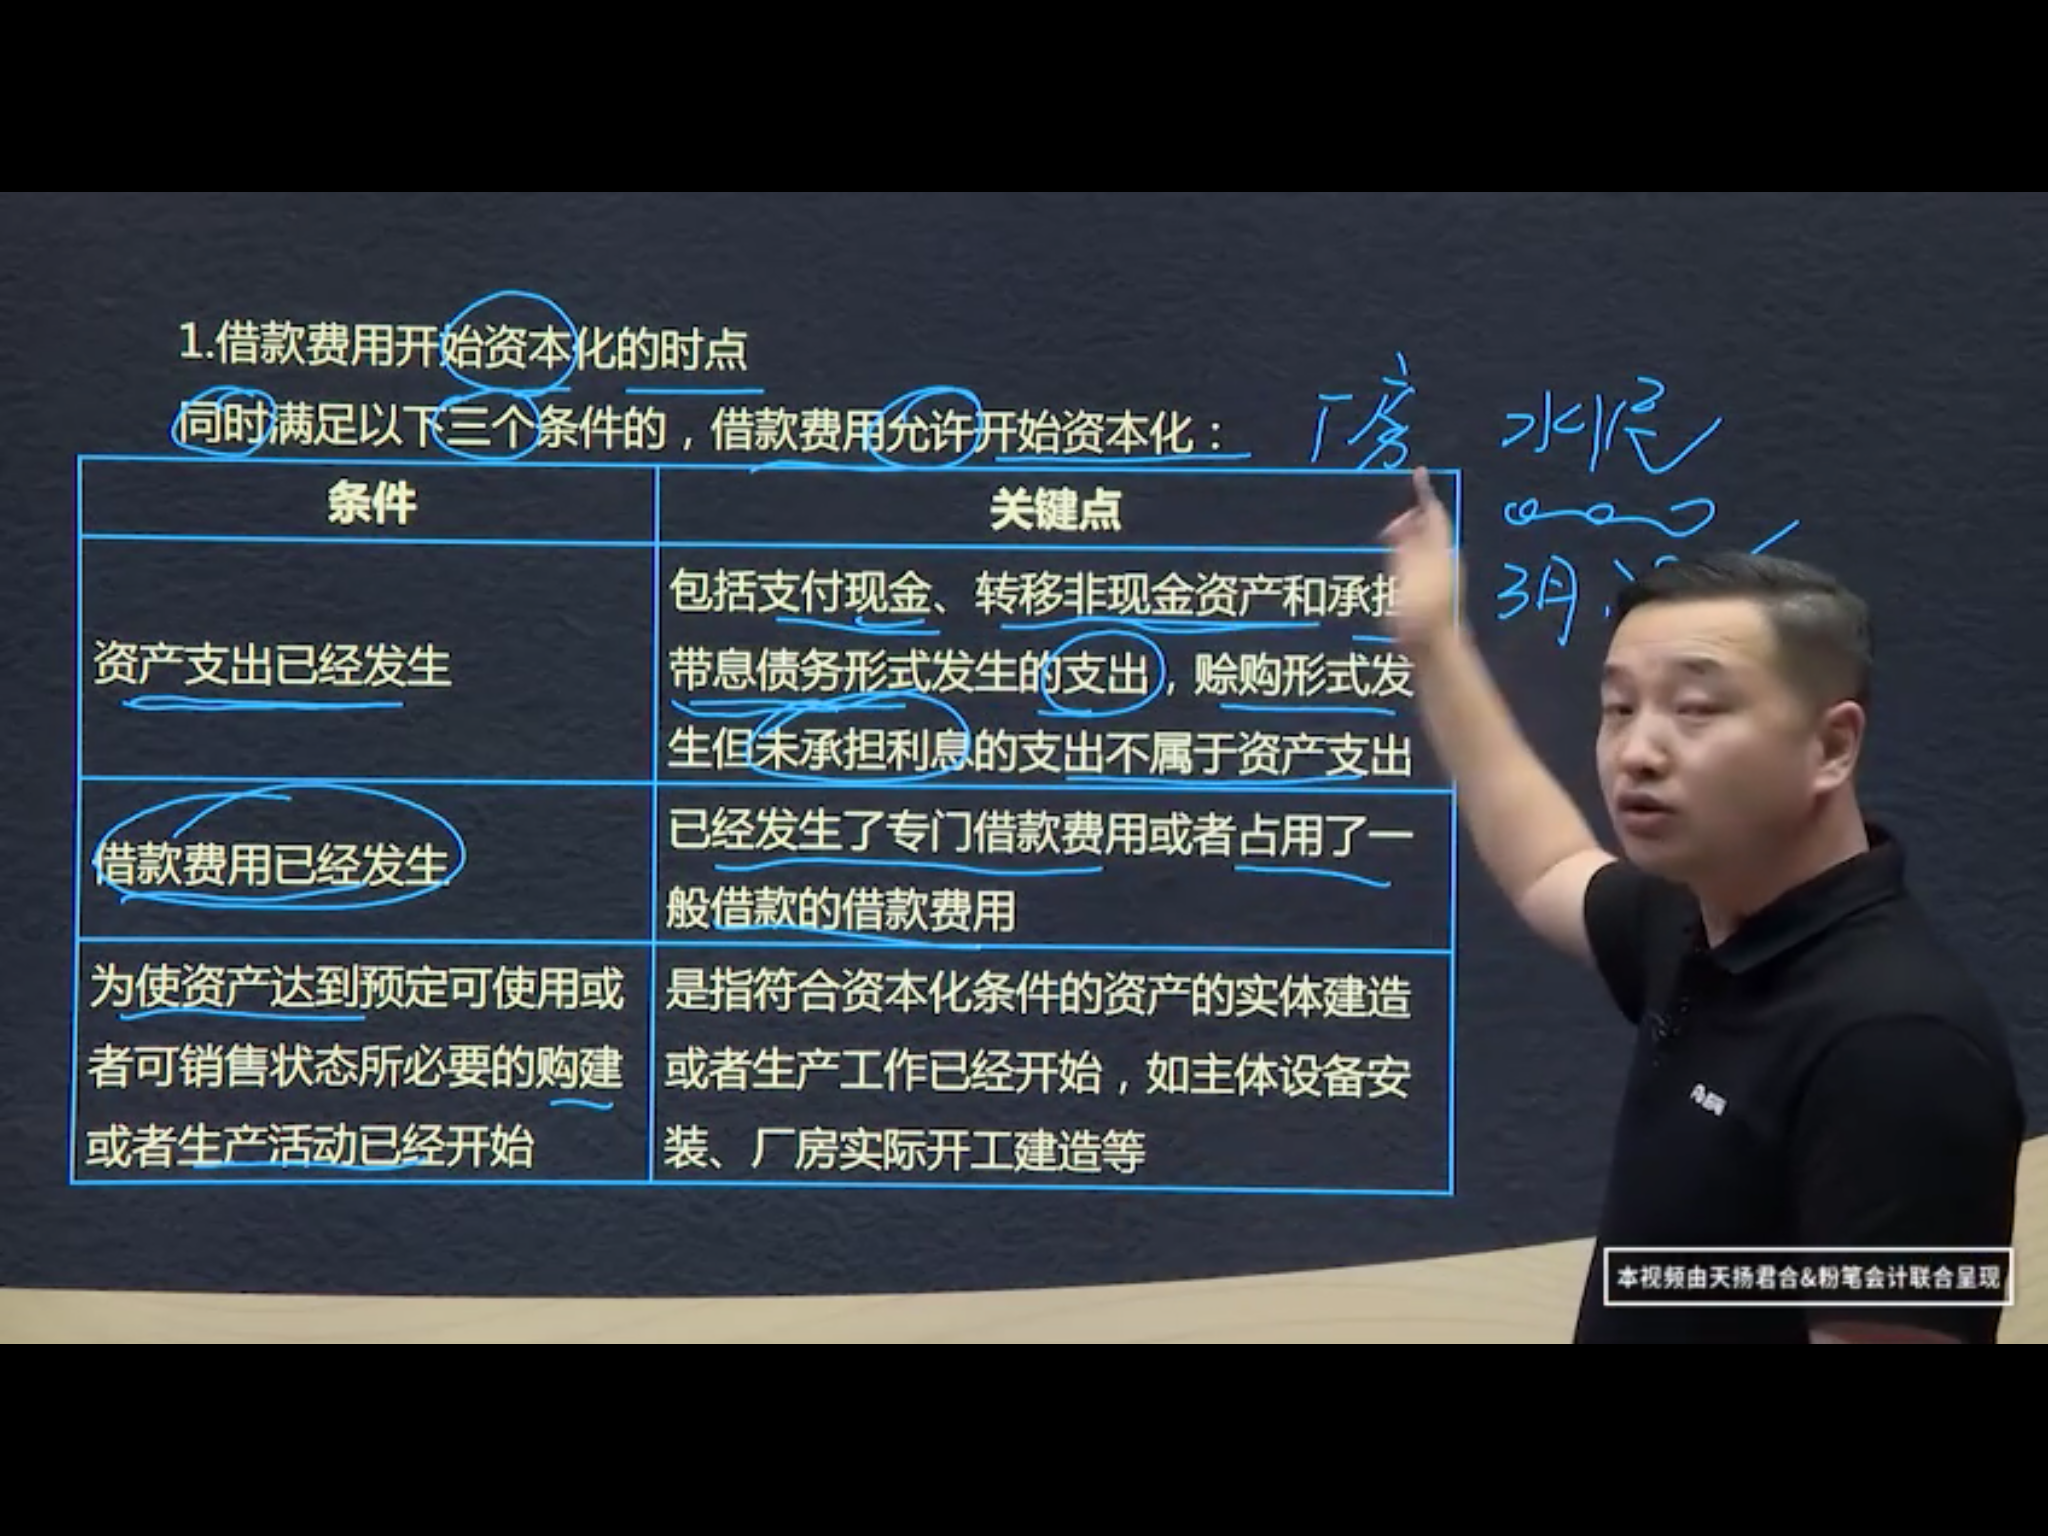 1.借款费用开始资本化的时点
同时满足以下三个条件的，借款费用允许开始资本化：
厂房 水泥
条件 关键点
3月
资产支出已经发生
包括支付现金、转移非现金资产和承担
带息债务形式发生的支出，赊购形式发
生但未承担利息的支出不属于资产支出
借款费用已经发生
已经发生了专门借款费用或者占用了一
般借款的借款费用
为使资产达到预定可使用或
者可销售状态所必要的购建
或者生产活动已经开始
是指符合资本化条件的资产的实体建造
或者生产工作已经开始，如主体设备安
装、厂房实际开工建造等
本视频由天扬君合&粉笔会计联合呈现